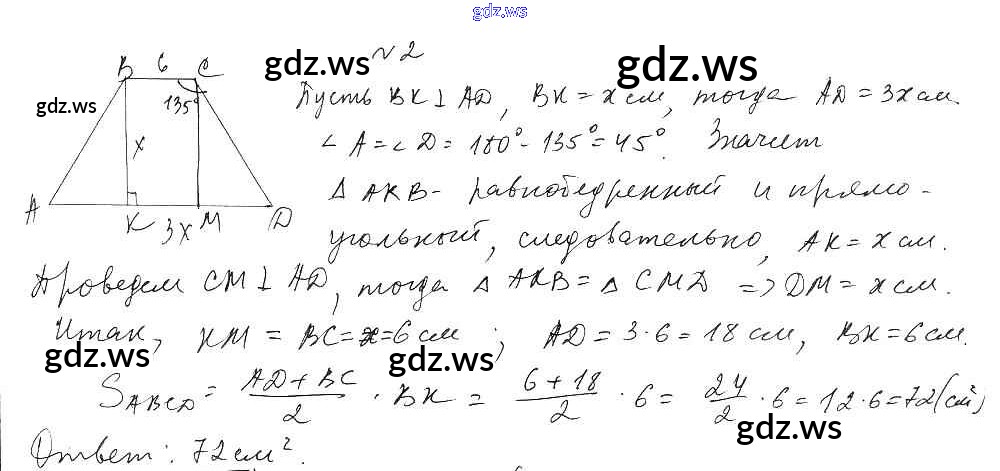 gdz.ws
№2
B 6 C
135°
x
A K 3x M D
gdz.ws
gdz.ws
gdz.ws
Пусть BK ⊥ AD, BK = x см, тогда AD = 3x см.
∠A = ∠D = 180° - 135° = 45°. Значит
△ AKB - равнобедренный и прямо-
угольный, следовательно, AK = x см.
Проведем CM ⊥ AD, тогда △ AKB = △ CMD => DM = x см.
Итак, KM = BC = x = 6 см ; AD = 3·6 = 18 см, BK = 6 см.
gdz.ws
gdz.ws
S ABCD = (AD + BC)/2 · BK = (6 + 18)/2 · 6 = 24/2 · 6 = 12 · 6 = 72 (см²)
gdz.ws
Ответ: 72 см².